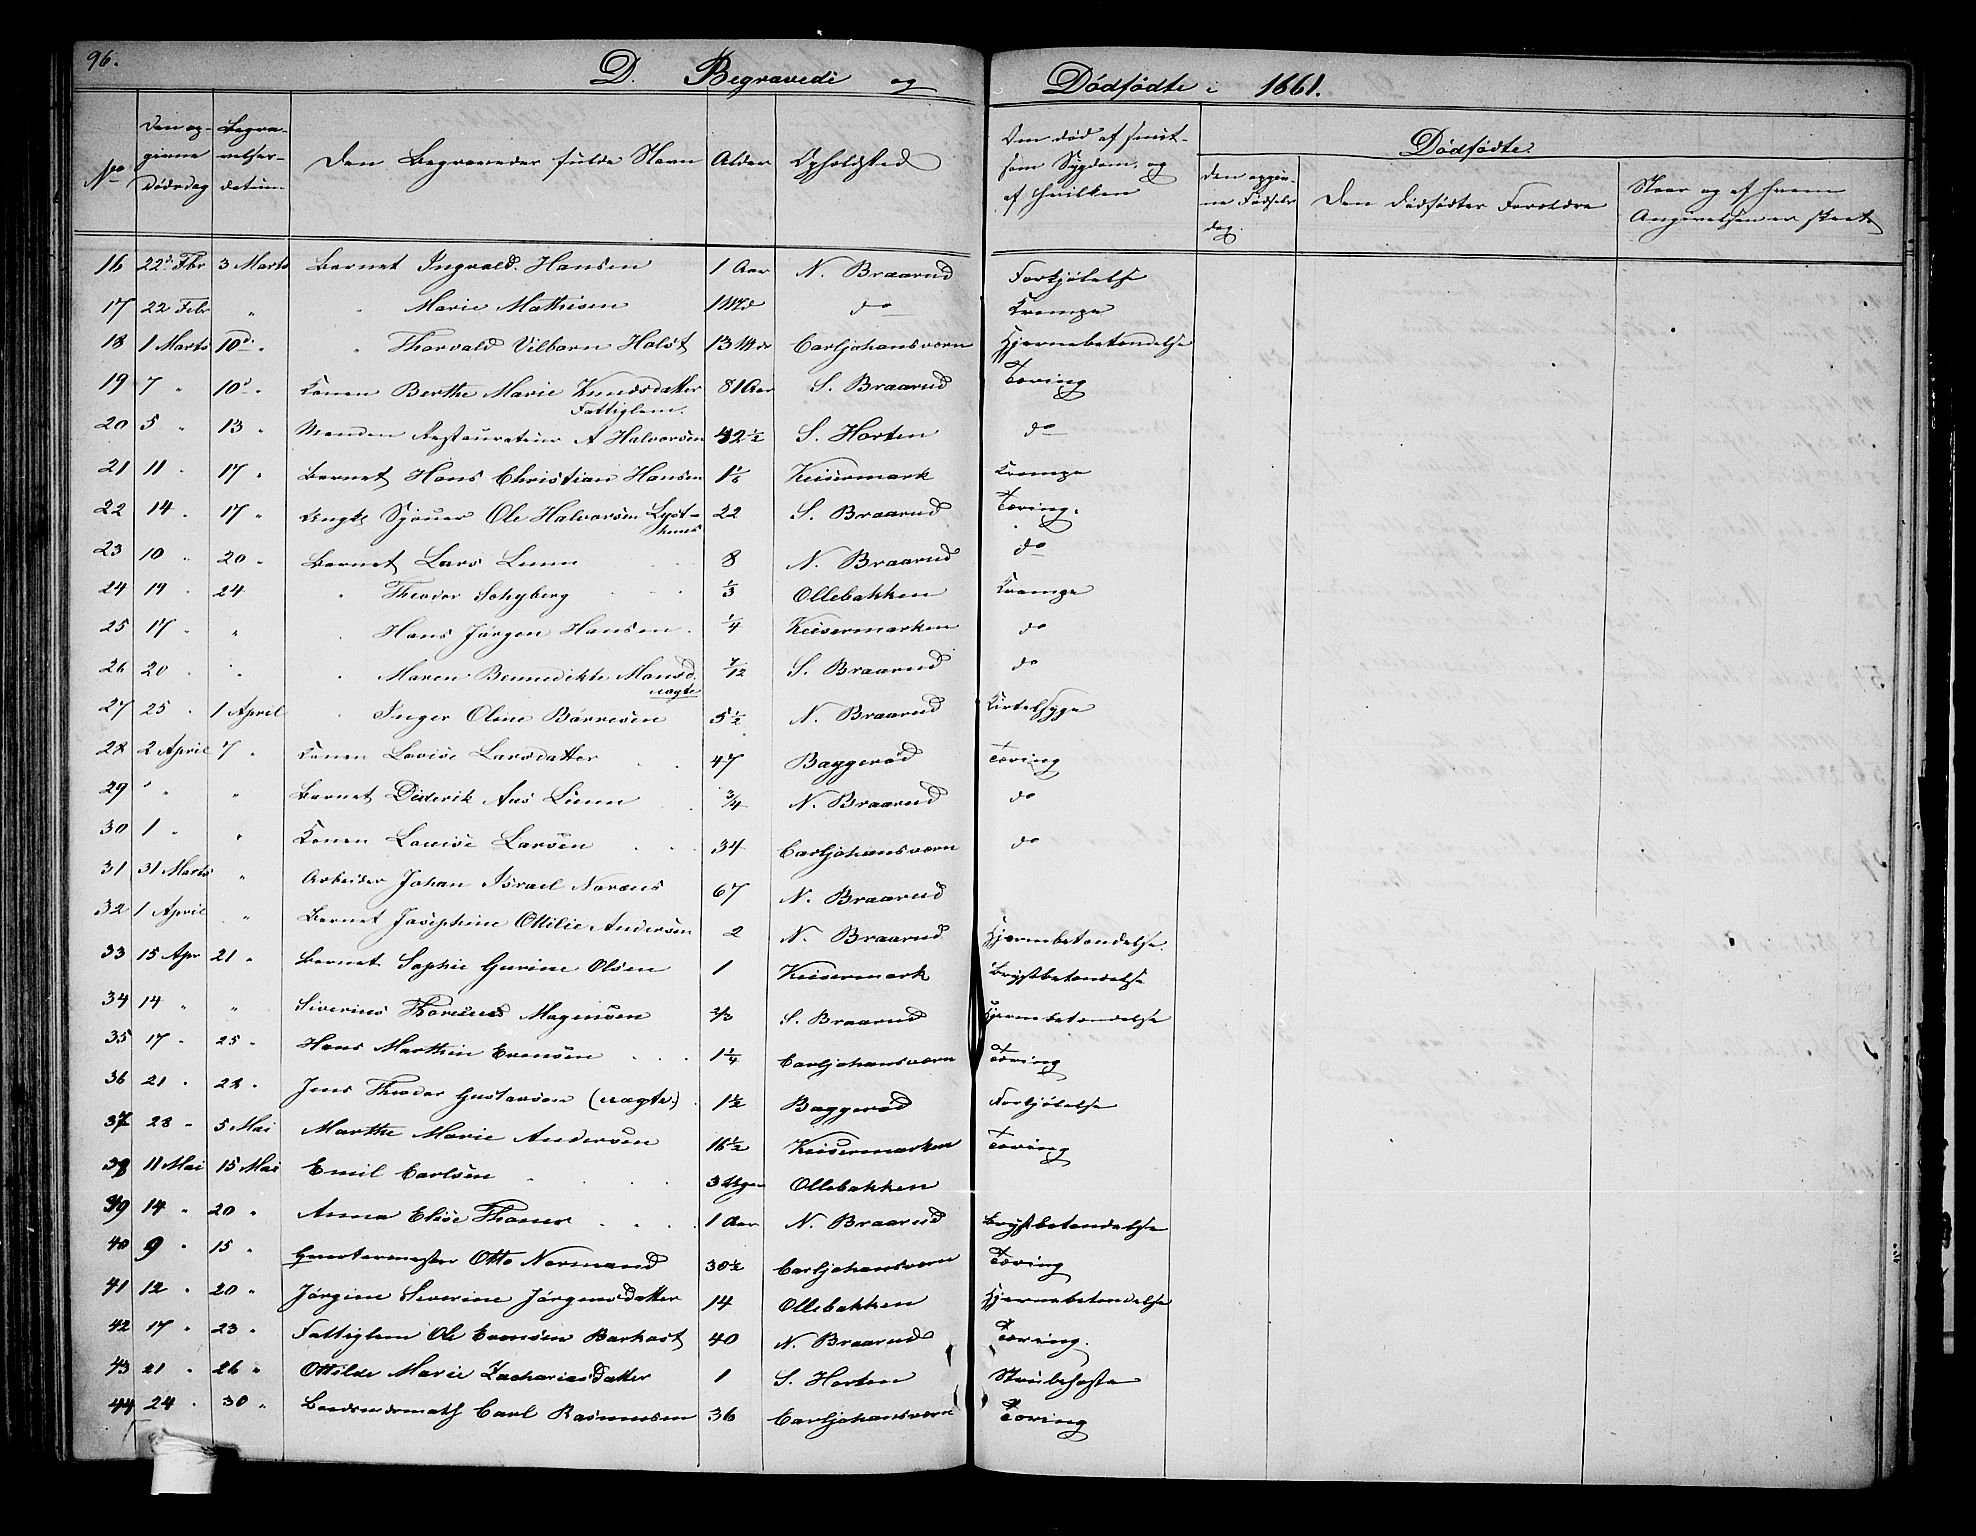 96.
D. Begravede og Dödfödte i 1861.
No | Den opgivne Dödsdag | Begravelses-datum | Den Begravedes fulde Navn | Alder | Opholdsted | Om död af smitsom Sygdom, og af hvilken | Dödfödte.
Den opgivne Födselsdag. | Den Dödfödtes Foreldre | Naar og af hvem Angivelsen er skeet
16 22d. Fbr 3 Marts Barnet Ingvald Hansen 1 Aar N. Braarud Forkjölelse
17 22 Febr " " Marie Mathisen 1 Md do Krampe
18 1 Marts 10d. " " Thorvald Vilborn Holst 13 Mdr Carljohansværn Hjernebetændelse
19 7 " 10d. " Konen Berthe Marie Knudsdatter 81 Aar S. Braarud Tæring
Fattiglem.
20 5 " 13 " Manden Restaurateur A Halvorsen 42½ S. Horten do
21 11 " 17 " Barnet Hans Christian Hansen Keisermark Krampe
22 14 " 17 " Ungk. Sjöuer Ole Halvorsen Lyst- 22 S. Braarud Tæring.
23 10 " 20 " Barnet Lars Lunn 8 N. Braarud do
24 19 " 24 " Theodor Schyberg ⅓ Ollebakken Krampe
25 17 " " " Hans Jörgen Hansen ¼ Keisermarken do
26 20 " " Maren Bennedikte Monsd. 7/12 S. Braarud do
uægte
27 25 " 1 April " Inger Oline Börresen 5½ N. Braarud Kirtelsyge
28 2 April 7 " Konen Lovise Larsdatter 47 Baggeröd Tæring
29 " " " Barnet Diderik Aas Lunn ¾ N. Braarud do
30 1 " " Konen Lovise Larsen 34 Carljohansværn do
31 31 Marts " Arbeider Johan Israel Noræus 67 N. Braarud
32 1 April " Barnet Josephine Ottilie Andersen 2 N. Braarud Hjernebetændelse.
33 15 Apr 21 " Barnet Sophie Gurine Olsen 1 Keisermark Brystbetændelse
34 14 " " Siverius Thorinus Magnusen ⅔ S. Braarud Hjernebetændelse
35 17 " 25 " Hans Marthin Evensen 1¼ Carljohansværn Tæring
36 21 " 28 " Jens Theodor Gustavsen (uægte) 1½ Baggeröd Forkjölelse
37 28 " 5 Mai Marthe Marie Andersen 16½ Keisermarken Tæring
38 11 Mai 15 Mai Emil Carlsen 3 Uger Ollebakken
39 14 " 20 " Anna Elise Thoner 1 Aar N. Braarud Brystbetændelse
40 9 " 15 " Qvartermester Otto Normand 30½ Carljohansværn Tæring
41 12 " 20 " Jörgine Siverine Jörgensdatter 14 Ollebakken Hjernebetændelse
42 17 " 23 " Fattiglem Ole Evensen Barkost 40 N. Braarud Tæring.
43 21 " 26 " Ottilde Marie Zachariasdatter 1 S. Horten Strubehoste
44 24 " 30 " Baadsmandsmath Carl Rasmussen 36 Carljohansværn Tæring